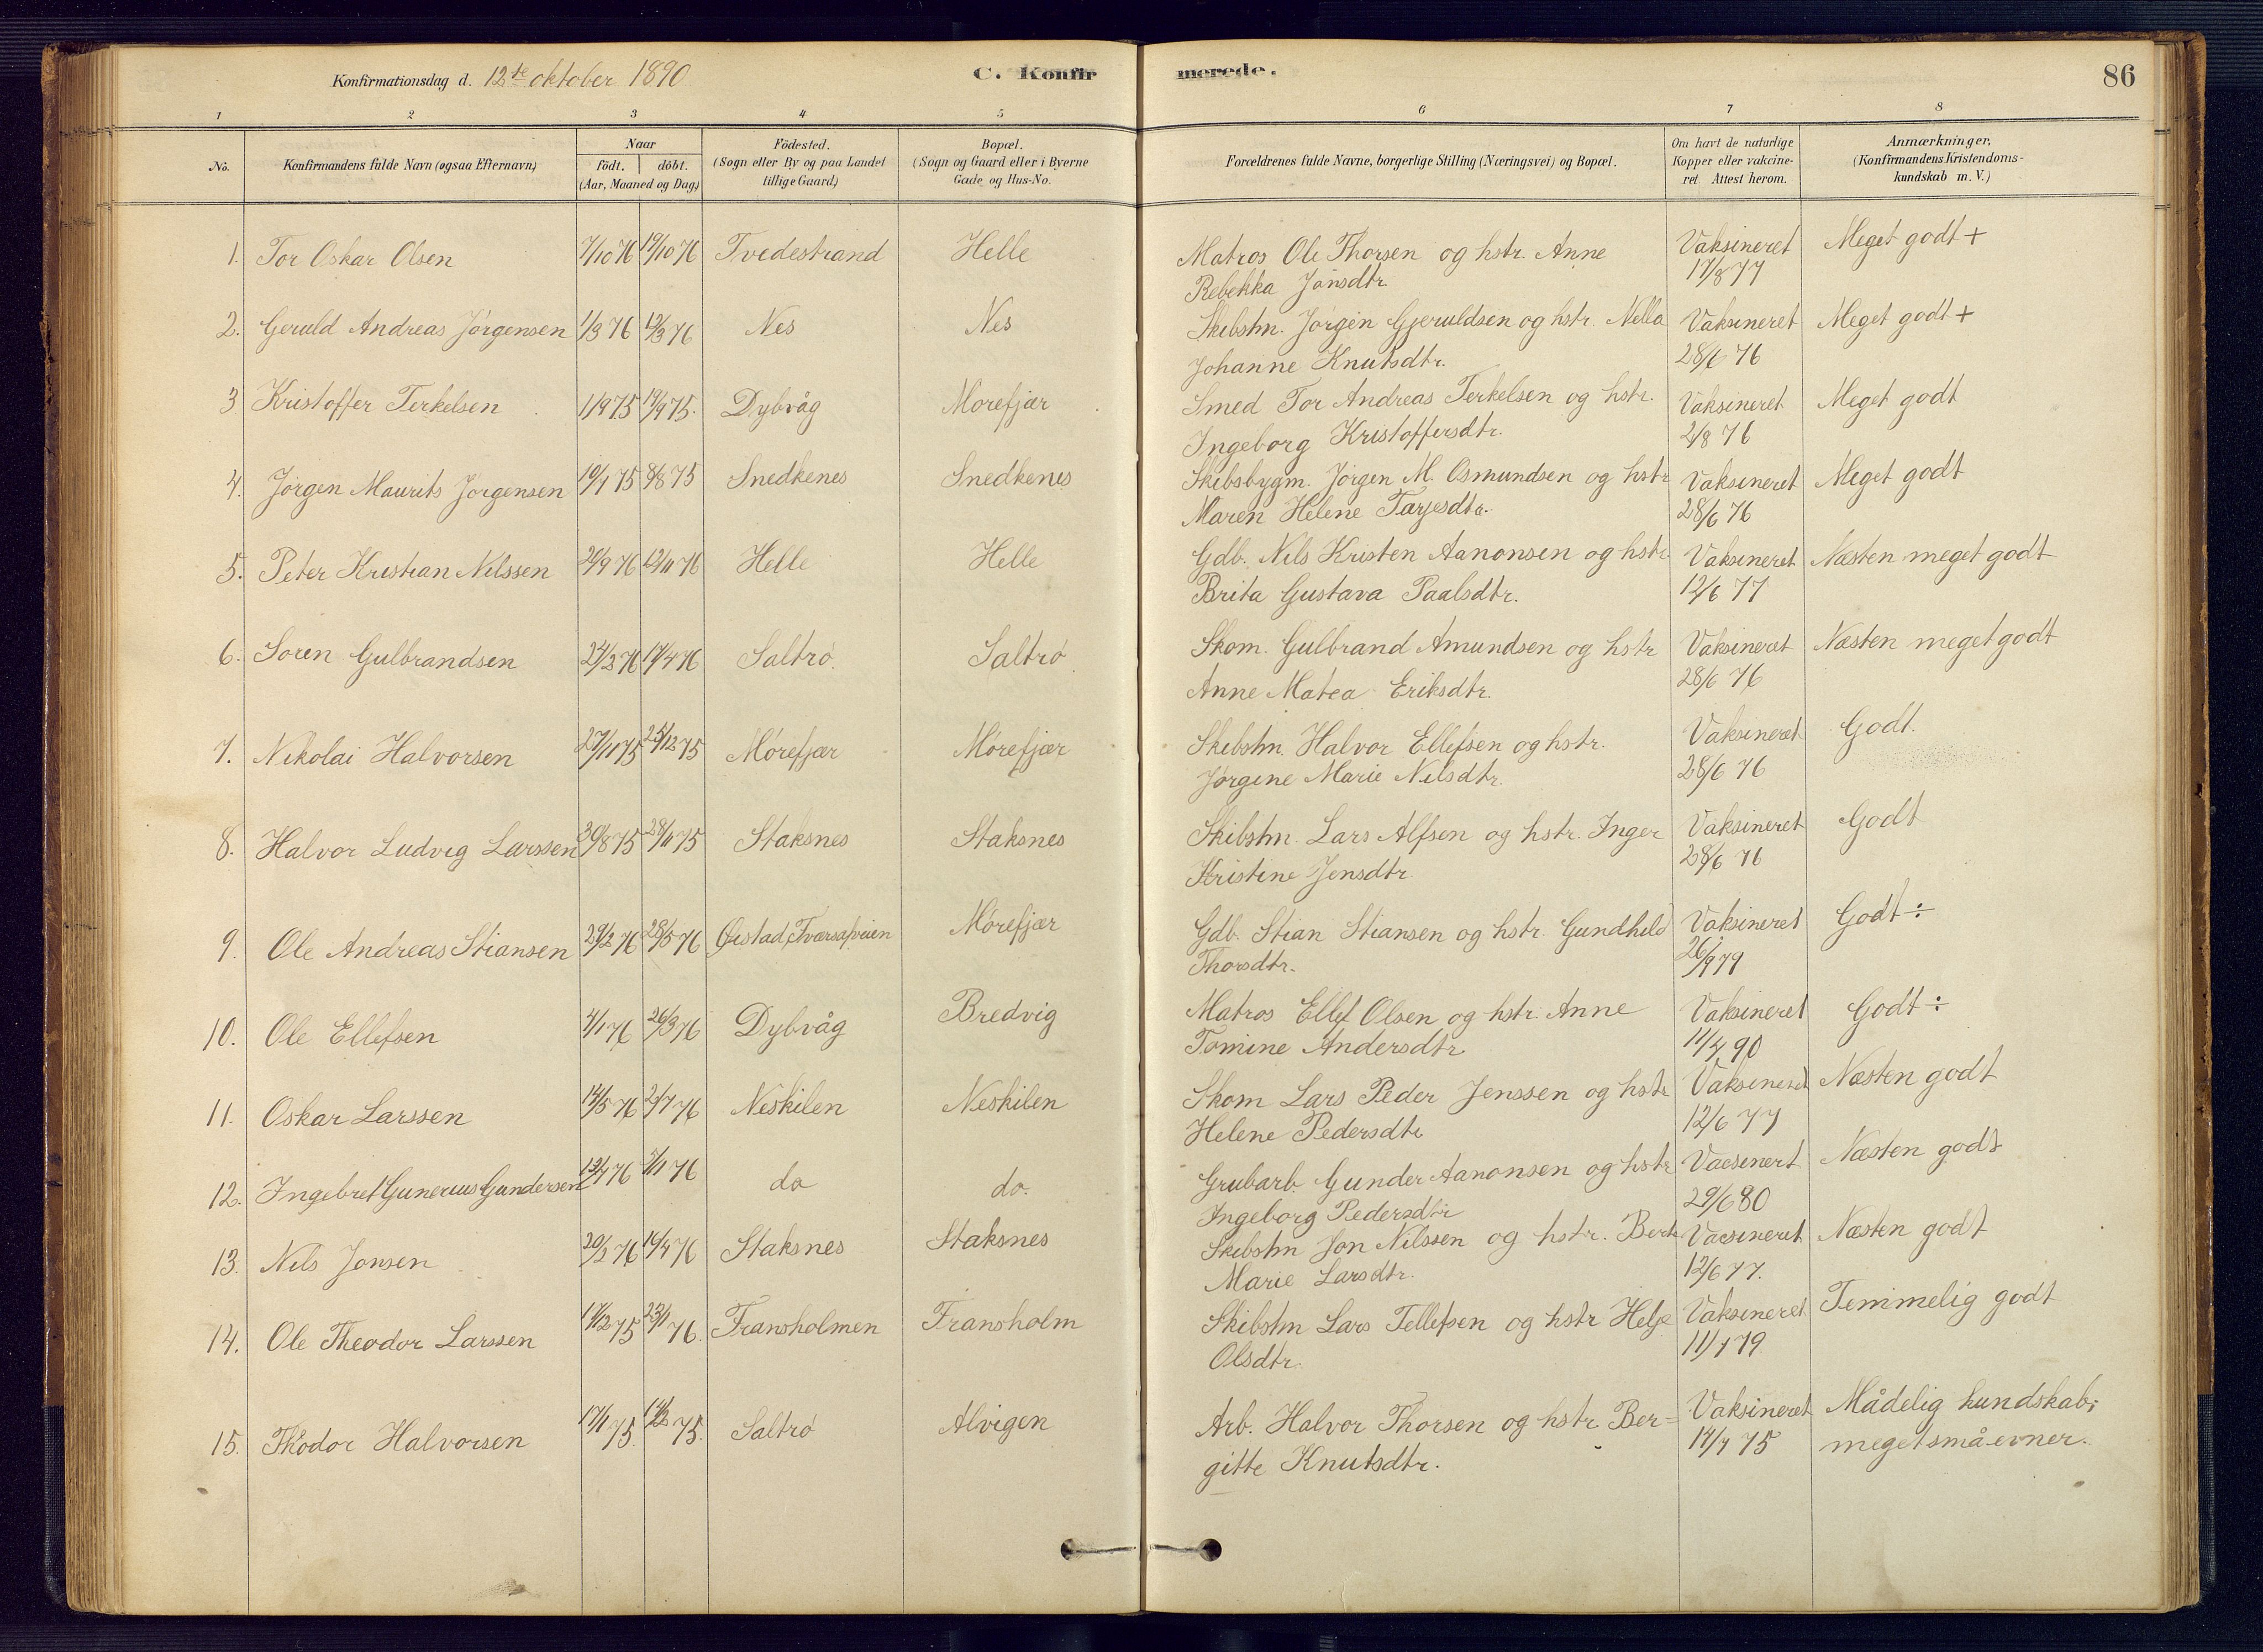 Konfirmationsdag d. 12te oktober 1890
C. Konfirmerede.
86
1 2 3 4 5 6 7 8
No. Konfirmandens fulde Navn (ogsaa Efternavn) Naar födt. döbt. (Aar, Maaned og Dag) Födested. (Sogn eller By og paa Landet tillige Gaard) Bopæl. (Sogn og Gaard eller i Byerne Gade og Hus-No. Forældrenes fulde Navne, borgerlige Stilling (Næringsvei) og Bopæl. Om havt de naturlige Kopper eller vakcineret Attest herom. Anmærkninger, (Konfirmandens Kristendomskundskab m. V.)
1. Tor Oskar Olsen 7/10 76 19/10 76 Tvedestrand Helle Matros Ole Thorsen og hstr. Anne Vaksineret Meget godt +
Rebekka Jönsdtr. 17/8 77
2. Geruld Andreas Jörgensen 1/3 76 12/3 76 Nes Nes Skibstm. Jörgen Gjeruldsen og hstr. Nella Vaksineret Meget godt +
Johanne Knutsdtr. 28/6 76
3 Kristoffer Terkelsen 1/9 75 19/9 75. Dybvåg Morefjær Smed Tor Andreas Terkelsen og hstr. Vaksineret Meget godt
Ingeborg Kristoffersdtr. 2/8 76
4. Jörgen Maurits Jörgensen 10/7 75 8/8 75 Snedkenes Snedkenes Skibsbygm. Jörgen M. Osmundsen og hstr Vaksineret Meget godt
Maren Helene Tarjesdtr. 28/6 76
5. Peter Kristian Nilssen 20/9 76 12/11 76 Helle Helle Gdb. Nils Kristen Aanonsen og hstr Vaksineret Næsten meget godt
Brita Gustava Paalsdtr. 12/6 77
6. Sören Gulbrandsen 27/2 76 17/4 76 Saltrö. Saltrö Skom. Gulbrand Amundsen og hstr Vaksineret Næsten meget godt
Anne Matea Eriksdtr. 28/6 76
7. Nikolai Halvorsen 27/11 75 25/12 75 Mörefjær Mörefjær Skibstm. Halvor Ellefsen og hstr. Vaksineret Godt.
Jörgine Marie Nilsdtr. 28/6 76
8. Halvor Ludvig Larssen 30/8 75 28/11 75 Staksnes Staksnes Skibstm. Lars Alfsen og hstr. Inger Vaksineret Godt
Kristine Jensdtr. 28/6 76
9. Ole Andreas Stiansen 29/2 76 28/5 76 Øistad, Mörefjær Gdb. Stian Stiansen og hstr. Gundhild Vaksineret Godt ÷
Thorsdtr. 26/9 79
10. Ole Ellefsen 4/1 76 26/3 76 Dybvåg Bredvig Matros Ellef Olsen og hstr. Anne Vaksineret Godt ÷
Tomine Andersdtr 11/7 90
11. Oskar Larssen 14/5 76 2/7 76 Neskilen Neskilen Skom Lars Peder Jenssen og hstr Vaksineret Næsten godt
Helene Pedersdtr 12/6 77
12. Ingebret Gunerius Gundersen 76 76 do do. Grubarb. Gunder Aanonsen og hstr Vacsinert Næsten godt
Ingeborg Pedersdtr 29/6 80
13. Nils Jonsen 20/2 76 76 Staksnes Staksnes Skibstm Jon Nilssen og hstr. Vacsineret Næsten godt
Marie Larsdtr. 12/6 77.
14. Ole Theodor Larssen 75 76. Fransholmen Fransholm Skibstm Lars Tellefsen og hstr Helje Vaksineret Temmelig godt
Olsdtr. 11/7 79
15. Thödor Halvorsen 75. 75. Saltrö Alvigen Arb. Halvor Thorsen og hstr. Ber= Vaksineret Mådelig kundskab;
gitte Knutsdtr. 75 meget små evner.